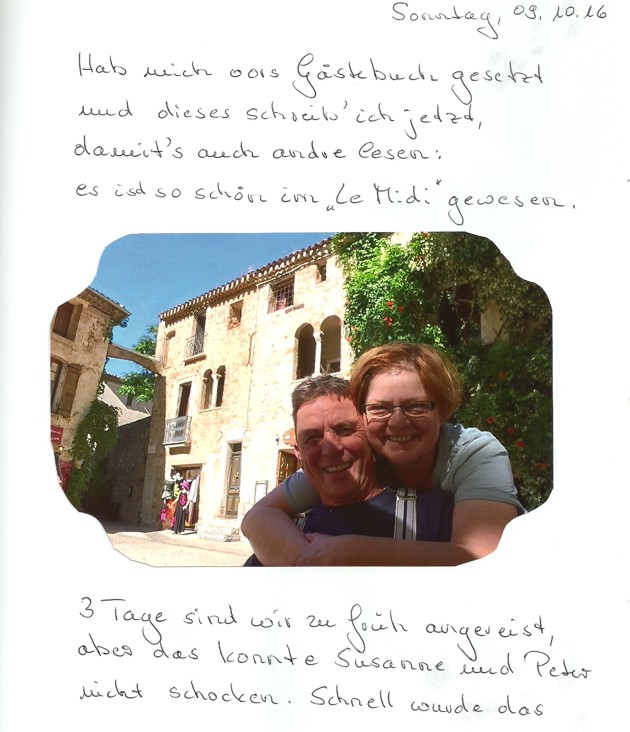 Sonntag, 09.10.16
Hab mich vors Gästebuch gesetzt
und dieses schreib' ich jetzt,
damit's auch andre lesen:
es ist so schön im „Le Midi" gewesen.
3 Tage sind wir zu früh angereist,
aber das konnte Susanne und Peter
nicht schocken. Schnell wurde das